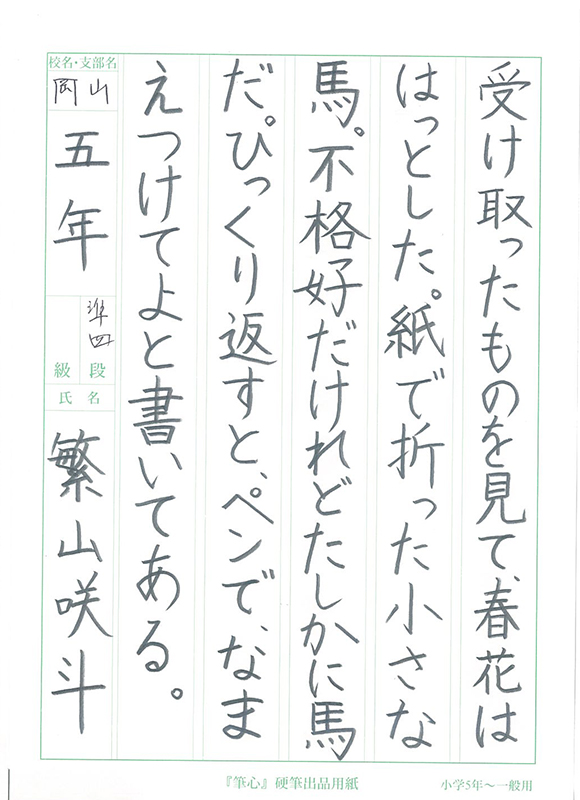 受け取ったものを見て、春花は
はっとした。紙で折った小さな
馬。不格好だけれどたしかに馬
だ。ひっくり返すと、ペンで、なま
えつけてよと書いてある。
校名・支部名
岡山
五年
準四
級 段
氏名
繁山咲斗
『筆心』硬筆出品用紙
小学5年〜一般用